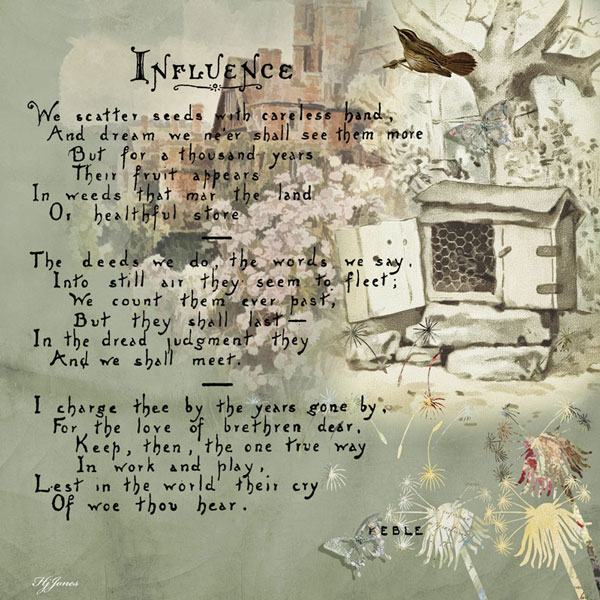 INFLUENCE
We scatter seeds with careless hand,
And dream we ne'er shall see them more
But for a thousand years
Their fruit appears
In weeds that mar the land
Or healthful store
The deeds we do, the words we say,
Into still air they seem to fleet;
We count them ever past,
But they shall last—
In the dread judgment they
And we shall meet.
I charge thee by the years gone by,
For the love of brethren dear,
Keep, then, the one true way
In work and play,
Lest in the world their cry
Of woe thou hear.
KEBLE
HjJones